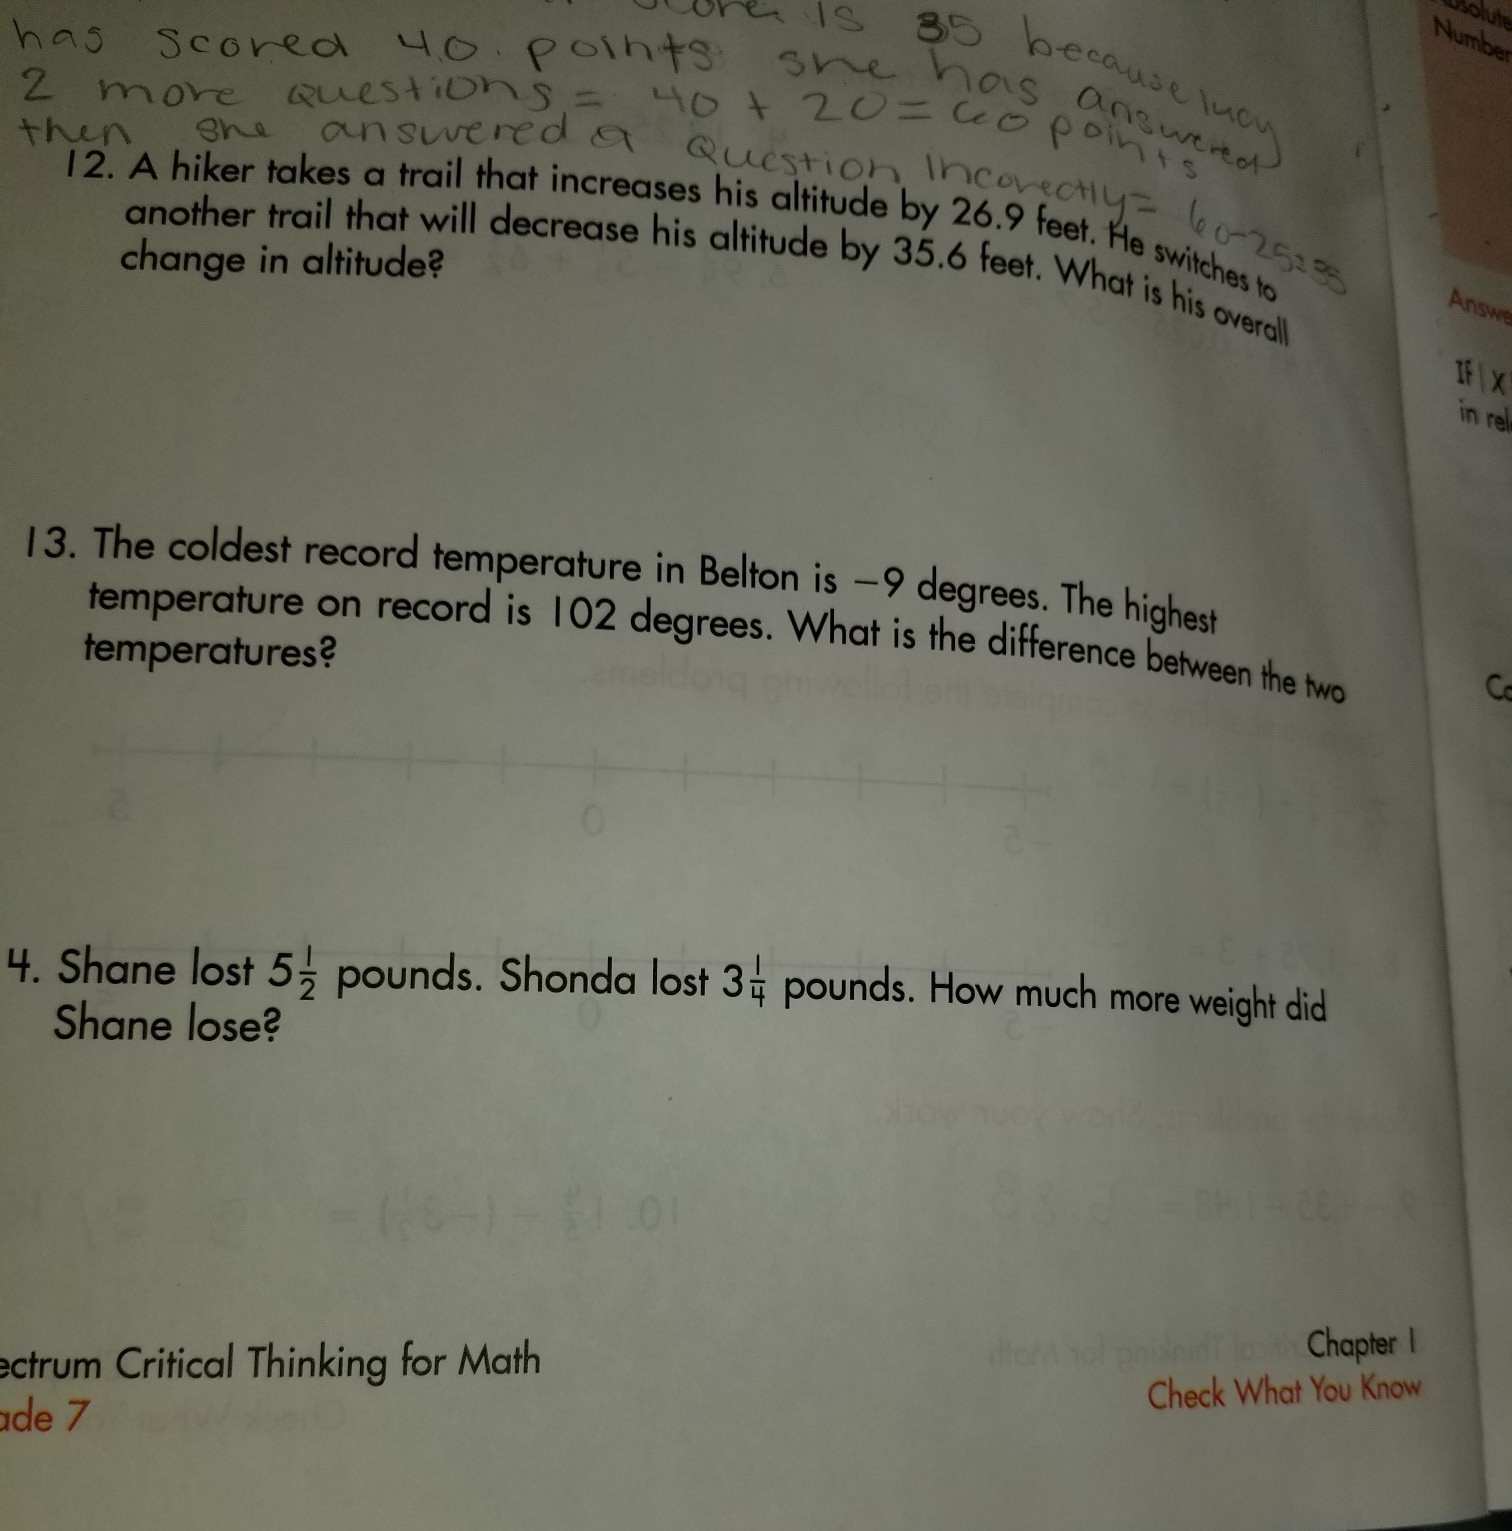 is 35 because lucy
has scored 40 points she has answered
2 more questions = 40 + 20 = 60 points
then she answered a question incorectly = 60-25=35
12. A hiker takes a trail that increases his altitude by 26.9 feet. He switches to
another trail that will decrease his altitude by 35.6 feet. What is his overall
change in altitude?
13. The coldest record temperature in Belton is −9 degrees. The highest
temperature on record is 102 degrees. What is the difference between the two
temperatures?
4. Shane lost 5 1/2 pounds. Shonda lost 3 1/4 pounds. How much more weight did
Shane lose?
ectrum Critical Thinking for Math
ade 7
Chapter 1
Check What You Know
Number
Answe
If | X
in rel
Co